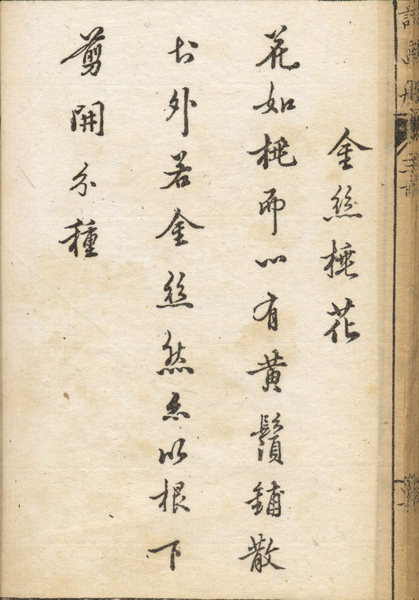 金絲桃花
花如桃而心有黃鬚鋪散
外若金絲然亦以根下
剪開分種